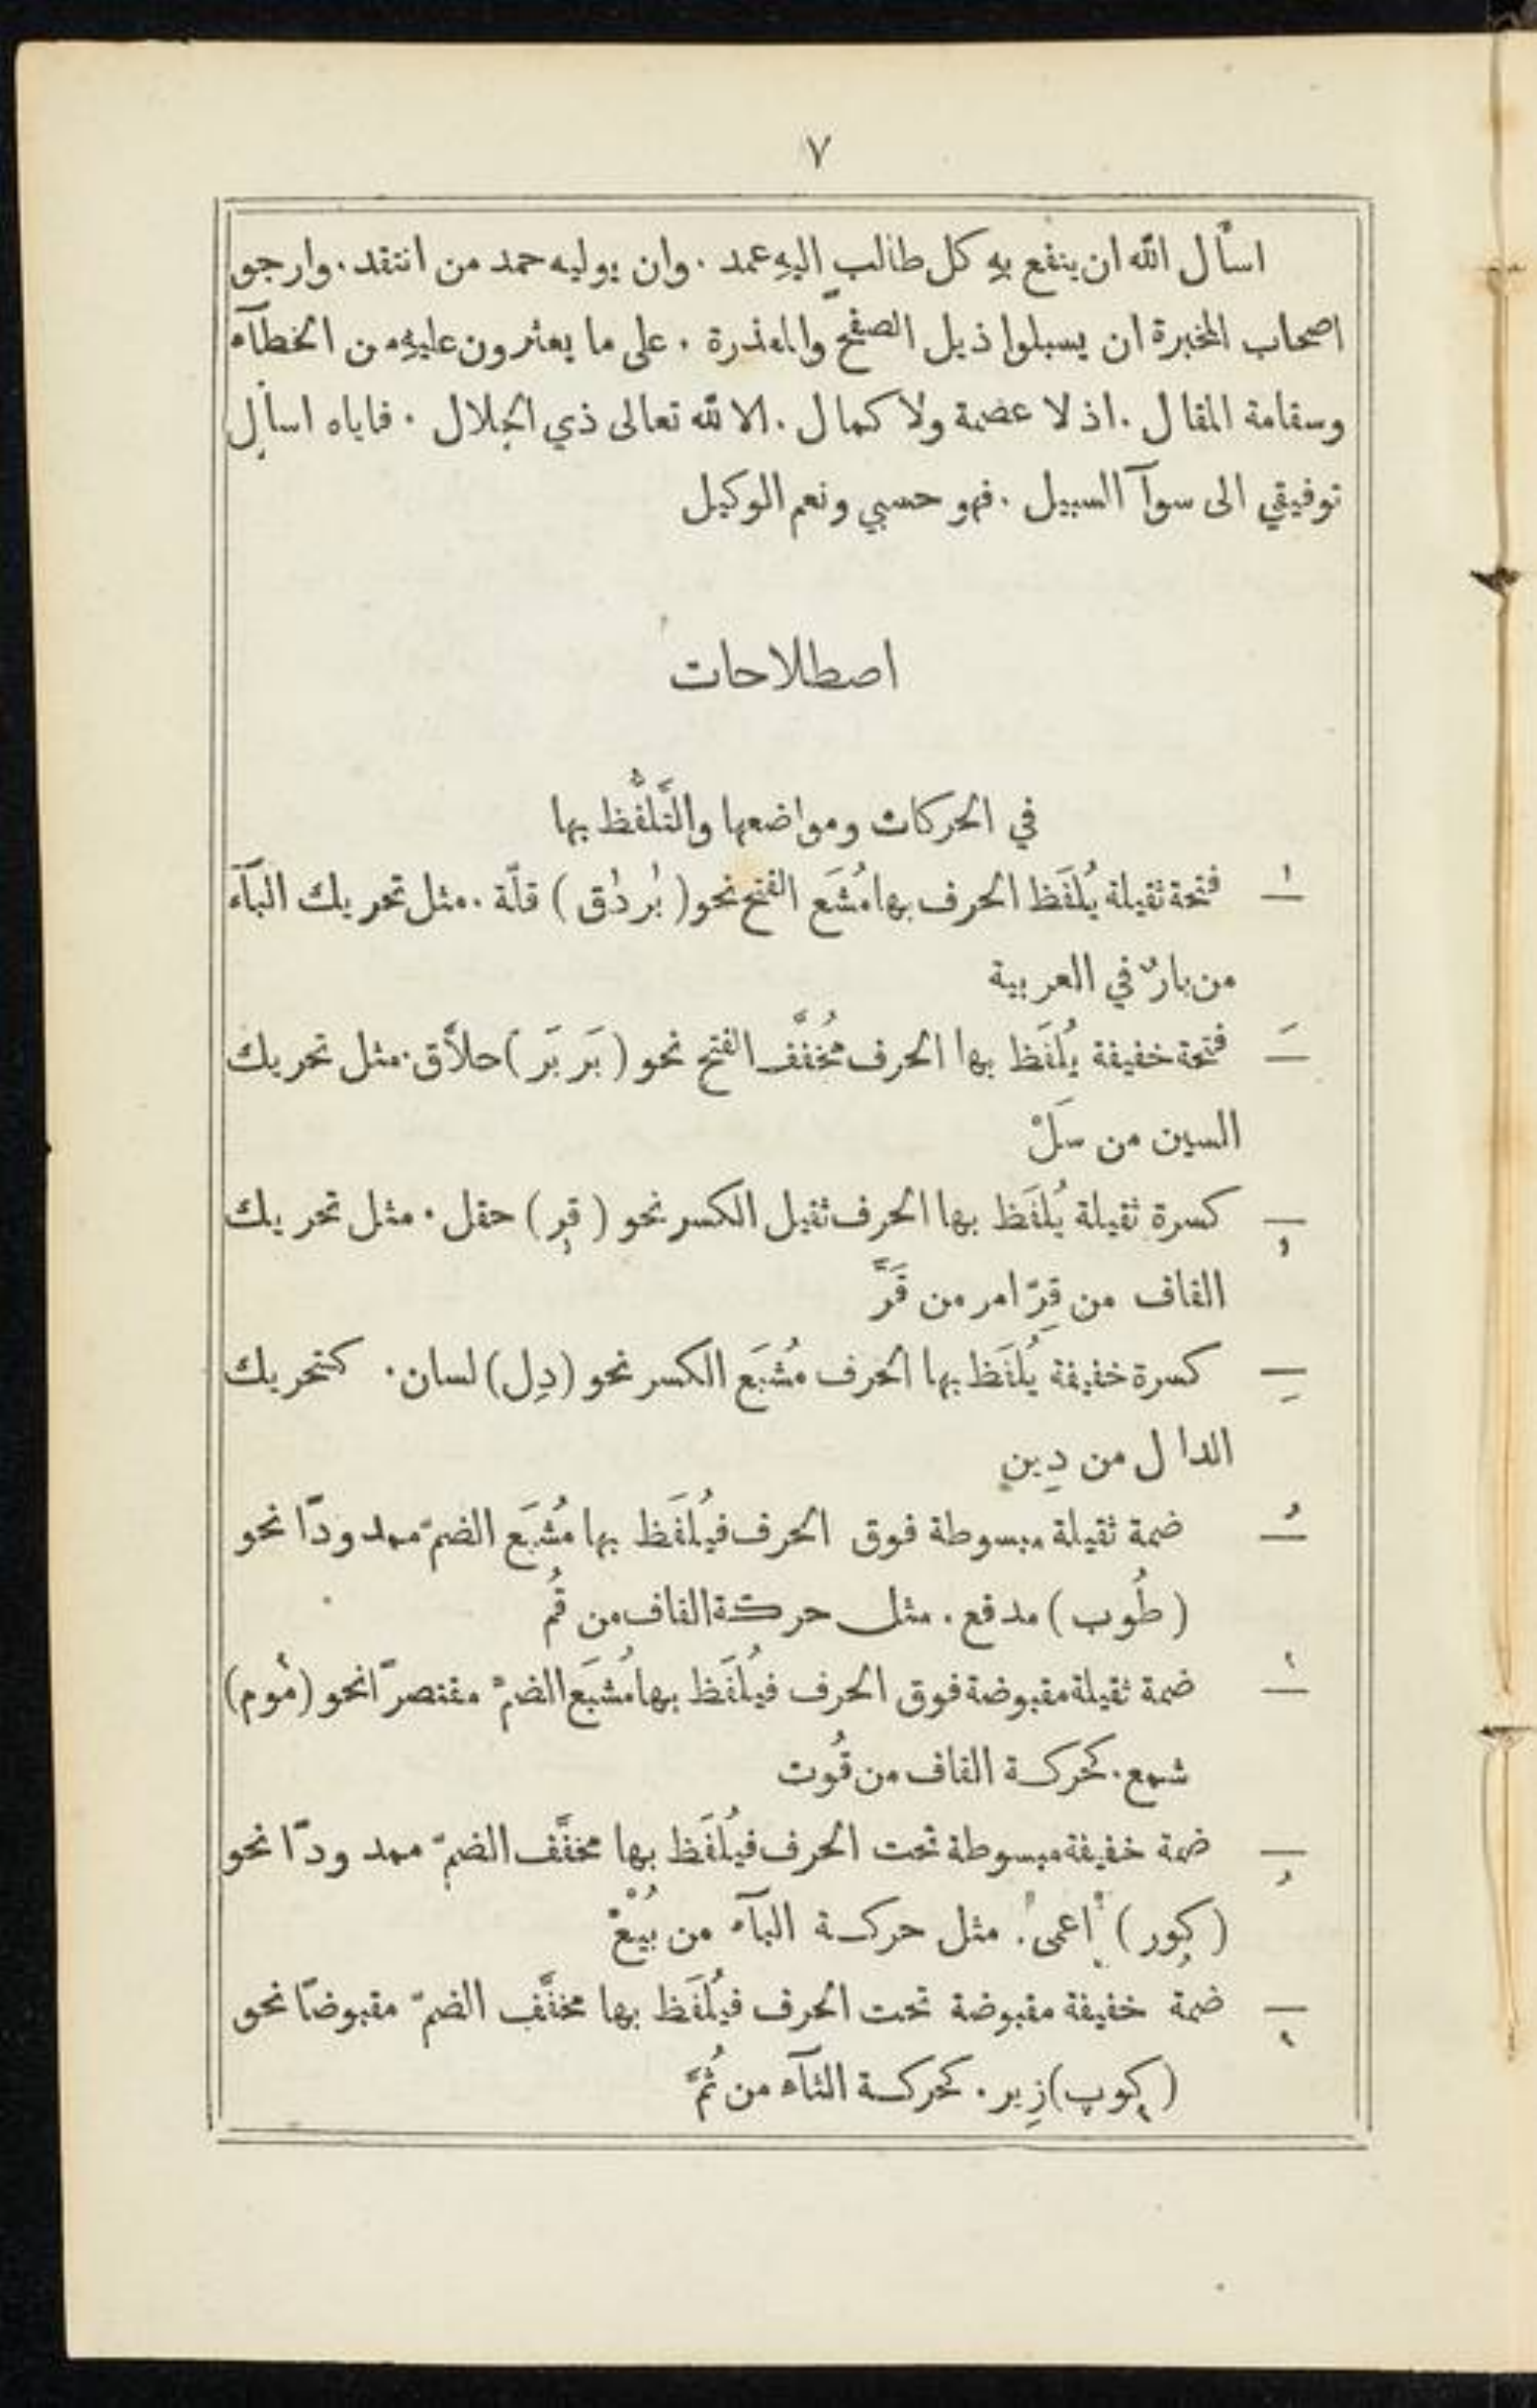 ٧
اسأل الله ان ينفع بهِ كل طالبٍ اليهِ عمد . وان يوليه حمد من انتقد . وارجو
اصحاب المخبرة ان يسبلوا ذيل الصفح والمعذرة . على ما يعثرون عليهِ من الخطآء
وسقامة المقال . اذ لا عصمة ولا كمال . الا لله تعالى ذي الجلال . فاياه اسأل
توفيقي الى سوآ السبيل . فهو حسبي ونعم الوكيل
اصطلاحات
في الحركات ومواضعها والتَّلفُّظ بها
فتحة ثقيلة يُلفَظ الحرف بها مُشبَع الفتح نحو ( بُردُق ) قلّة . مثل تحريك البآء
من بارٌ في العربية
فتحة خفيفة يُلفَظ بها الحرف مُخفَّف الفتح نحو ( بَربَر ) حلاَّق . مثل تحريك
السين من سَلْ
كسرة ثقيلة يُلفَظ بها الحرف ثقيل الكسر نحو ( قِر ) حقل . مثل تحريك
القاف من قِرّ امر من قَرَّ
كسرة خفيفة يُلفَظ بها الحرف مُشبَع الكسر نحو (دِل) لسان . كتحريك
الدال من دِين
ضمة ثقيلة مبسوطة فوق الحرف فيُلفَظ بها مُشبَع الضمّ ممدودًا نحو
( طُوب ) مدفع . مثل حركة القاف من قُم
ضمة ثقيلة مقبوضة فوق الحرف فيُلفَظ بها مُشبَع الضمّ مقتصرًا نحو (مُوم)
شمع . كحركة القاف من قُوت
ضمة خفيفة مبسوطة تحت الحرف فيُلفَظ بها مخفَّف الضمّ ممدودًا نحو
( كور ) اعمى . مثل حركة البآء من بُيْعْ
ضمة خفيفة مقبوضة تحت الحرف فيُلفَظ بها مخفَّف الضمّ مقبوضًا نحو
( كوپ ) زِير . كحركة الثآء من ثُمَّ